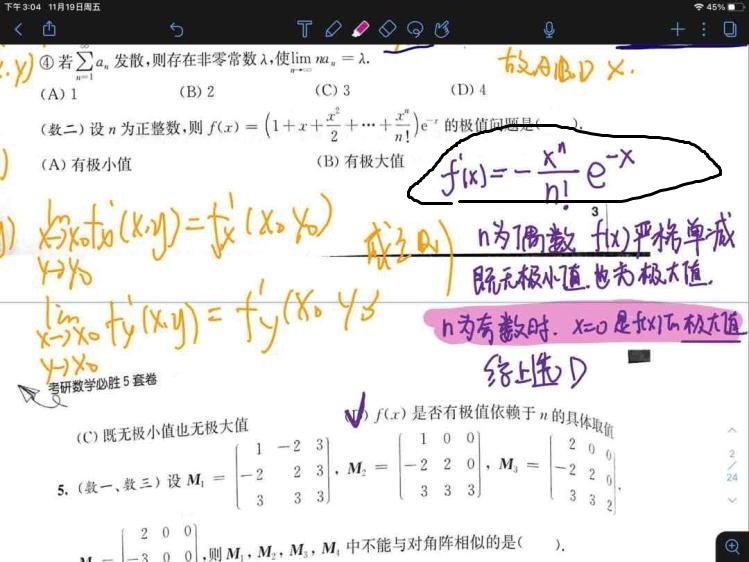 下午3:04 11月19日周五
45%
④ 若∑aₙ 发散,则存在非零常数λ,使lim naₙ = λ.
n=1
n→∞
故A.B.D ×.
(A) 1 (B) 2 (C) 3 (D) 4
(数二) 设 n 为正整数,则 f(x) = (1+x+x²/2+⋯+xⁿ/n!)e⁻ˣ 的极值问题是( ).
(A) 有极小值 (B) 有极大值
f'(x) = -xⁿ/n! e⁻ˣ
3
lim fx'(x,y) = fx'(x₀ y₀)
x→x₀
y→y₀
n为偶数 f(x)严格单减
既无极小值.也无极大值.
lim fy'(x,y) = fy'(x₀ y₀)
x→x₀
y→y₀
n为奇数时. x=0 是f(x)的极大值
综上选D
考研数学必胜5套卷
(C) 既无极小值也无极大值 (D) f(x) 是否有极值依赖于 n 的具体取值
5. (数一、数三) 设 M₁ = (1 −2 3; −2 2 3; 3 3 3), M₂ = (1 0 0; −2 2 0; 3 3 3), M₃ = (2 0 0; −2 2 0; 3 3 2),
2 0 0
−3 0 0 ,则 M₁, M₂, M₃, M₄ 中不能与对角阵相似的是( ).
2
24